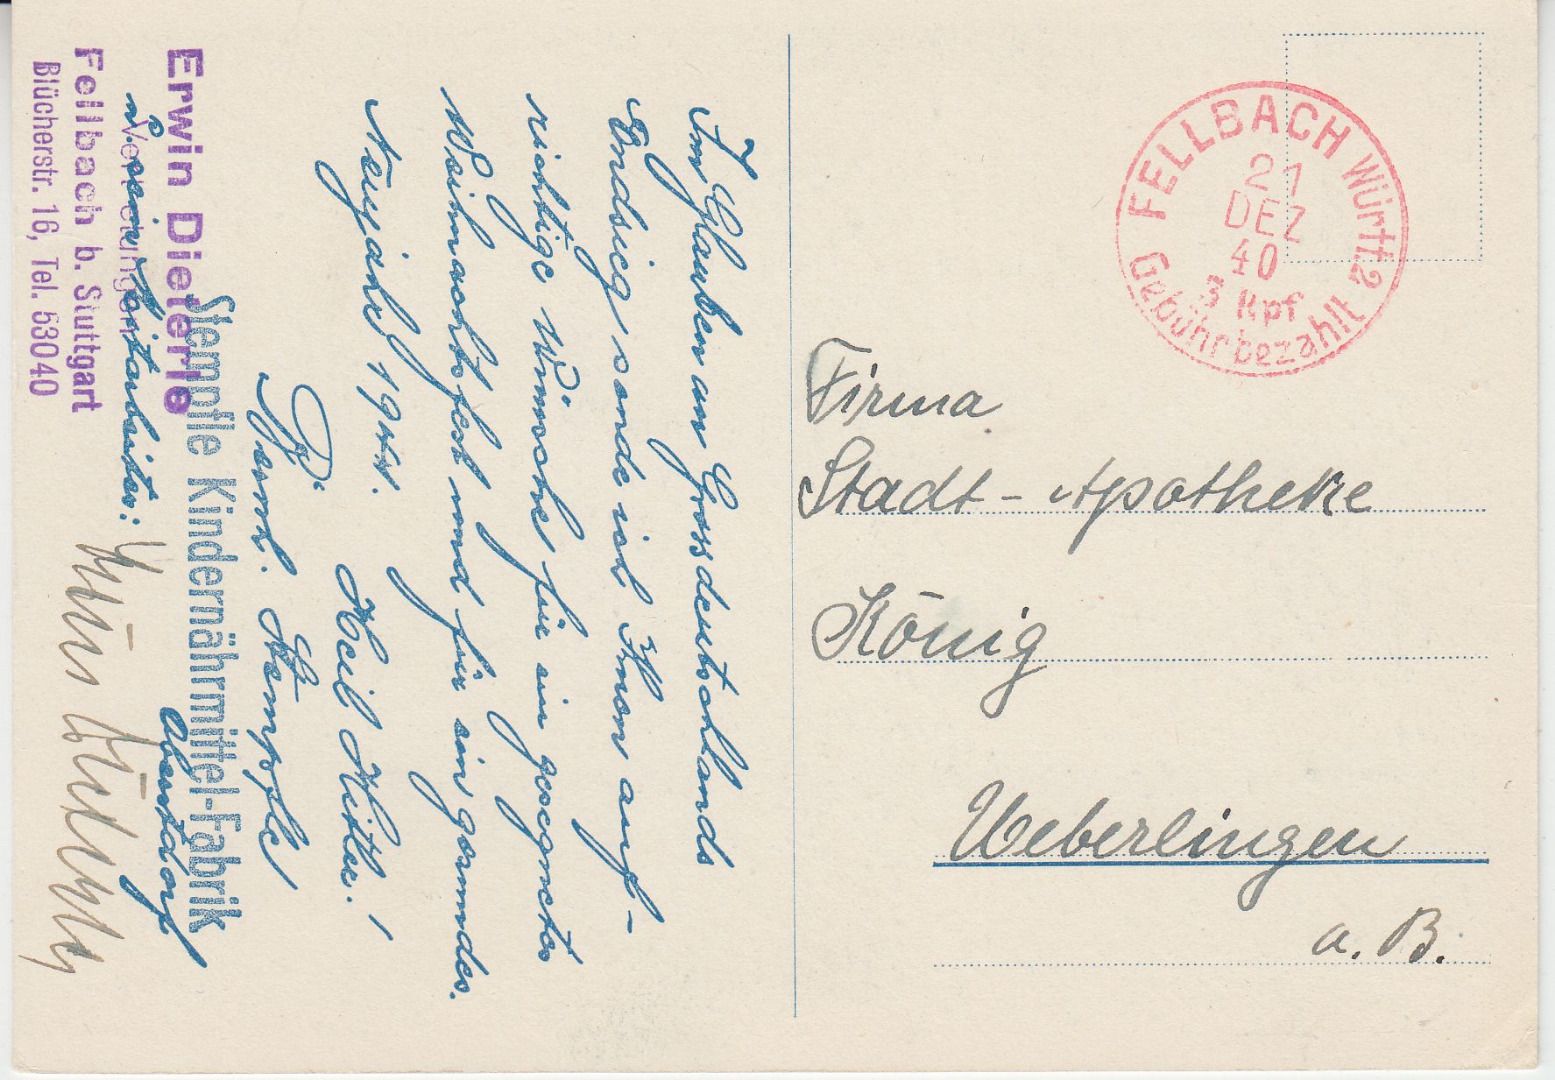 FELLBACH Württ. 2
21
DEZ
40
3 Rpf
Gebühr bezahlt
Firma
Stadt-Apotheke
König
Ueberlingen
a. B.
Im Glauben an Grossdeutschlands
Endsieg sende ich Ihnen auf-
richtige Wünsche für ein gesegnetes
Weihnachtsfest und für ein gesundes
Neujahr 1941.
Heil Hitler!
Bernh. Stempfle
Stempfle Kindernährmittel-Fabrik
Erwin Dieterle
Vertretungen
u. sein Mitarbeiter:
Fellbach b. Stuttgart
Blücherstr. 16, Tel. 53040